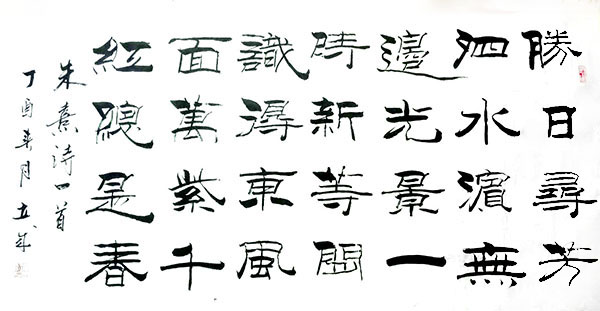 勝日尋芳
泗水濱無
邊光景一
時新等閒
識得東風
面萬紫千
紅總是春
朱熹詩一首
丁酉春月